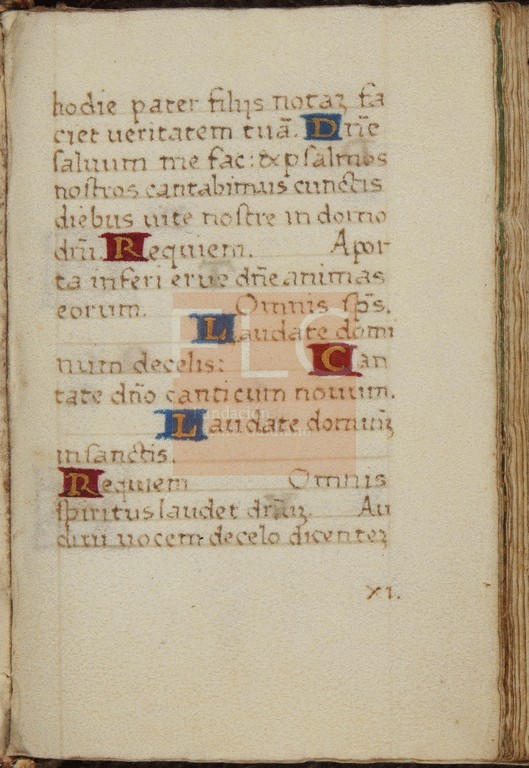 hodie pater filijs notaʒ fa
ciet veritatem tuā. Dn̄e
saluum me fac: & psalmos
nostros cantabimus cunctis
diebus uite nostre in domo
dn̄i Requiem. A por
ta inferi erue dn̄e animas
eorum. Omnis sp̄s.
Laudate domi
num decelis: Can
tate dn̄o canticum nouum.
Laudate dominū
in sanctis
Requiem Omnis
spiritus laudet dn̄uʒ. Au
diui uocem decelo dicenteʒ
XI.
FLG
Fundación